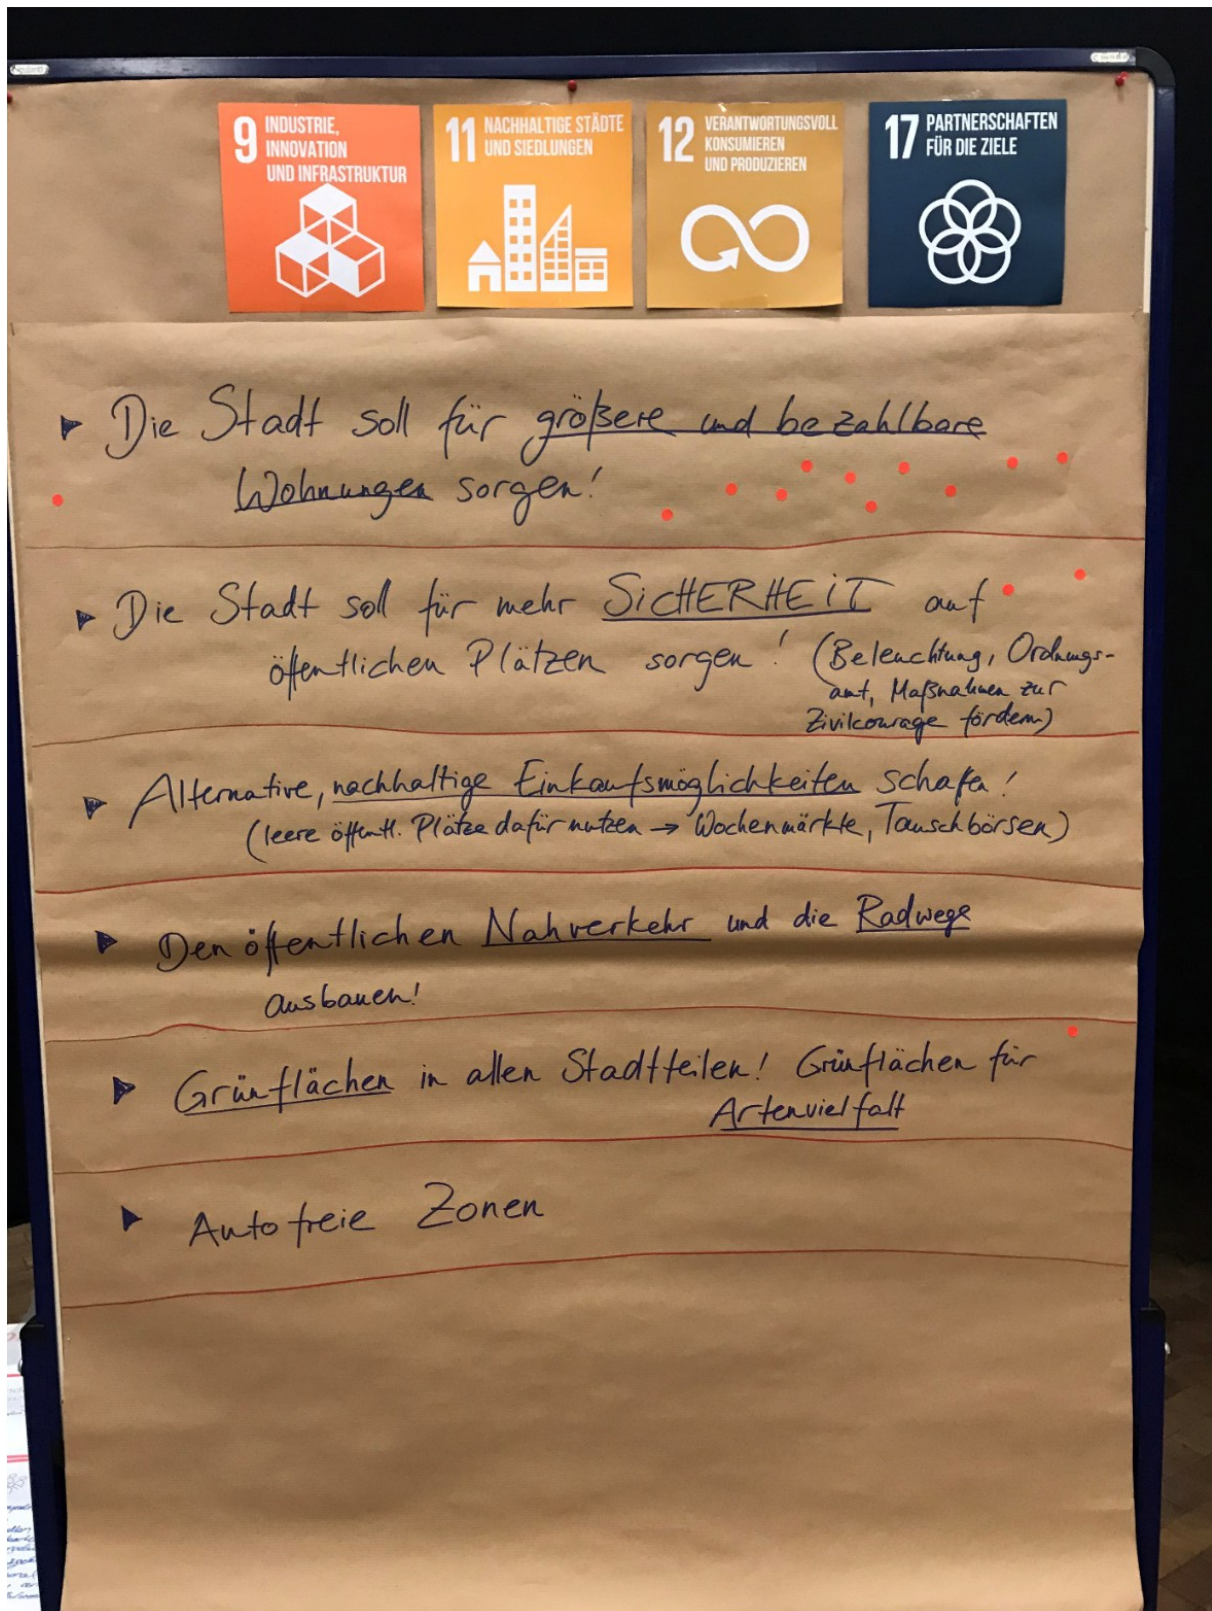 9 INDUSTRIE,
INNOVATION
UND INFRASTRUKTUR
11 NACHHALTIGE STÄDTE
UND SIEDLUNGEN
12 VERANTWORTUNGSVOLL
KONSUMIEREN
UND PRODUZIEREN
17 PARTNERSCHAFTEN
FÜR DIE ZIELE
Die Stadt soll für größere und bezahlbare
Wohnungen sorgen!
Die Stadt soll für mehr SicHERHEiT auf
öffentlichen Plätzen sorgen! (Beleuchtung, Ordnungs-
amt, Maßnahmen zur
Zivilcourage fördern)
Alternative, nachhaltige Einkaufsmöglichkeiten schaffen!
(leere öffentl. Plätze dafür nutzen → Wochenmärkte, Tauschbörsen)
Den öffentlichen Nahverkehr und die Radwege
ausbauen!
Grünflächen in allen Stadtteilen! Grünflächen für
Artenvielfalt
Autofreie Zonen